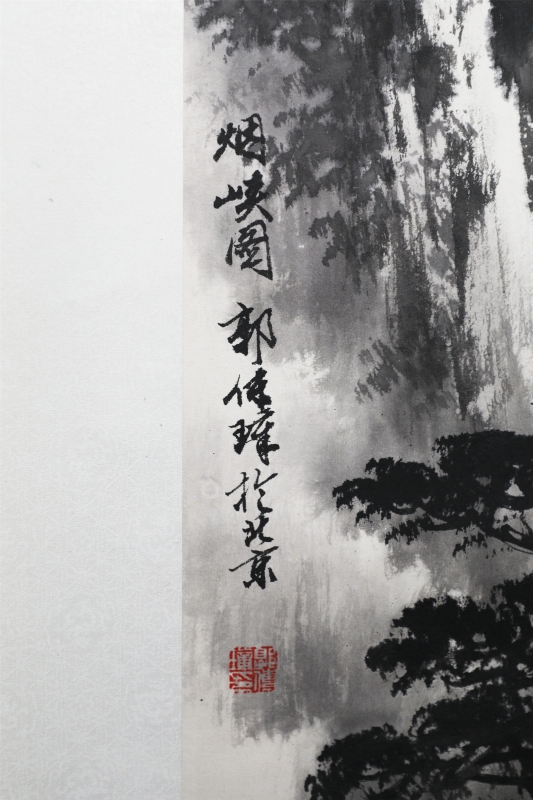 烟峡图 郭傳璋於北京